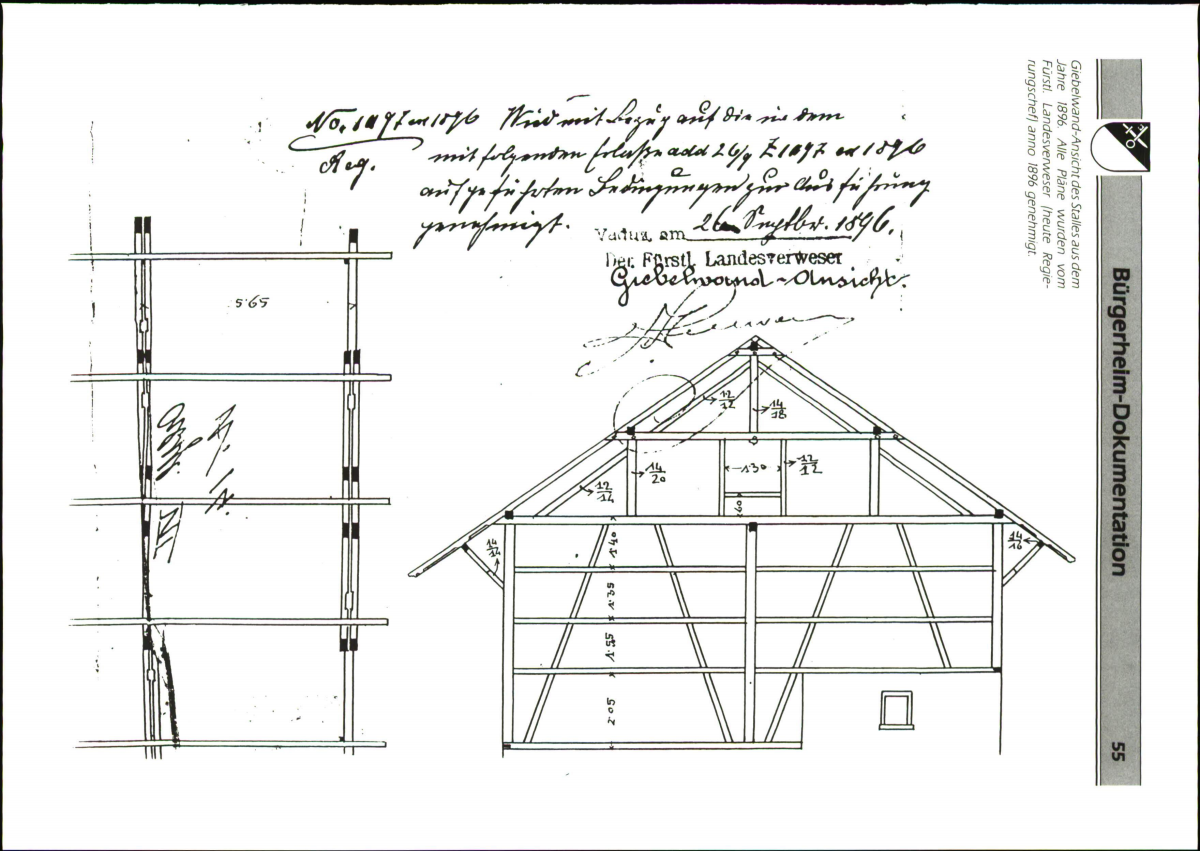 Bürgerheim-Dokumentation
55
Giebelwand-Ansicht des Stalles aus dem
Jahre 1896. Alle Pläne wurden vom
Fürstl. Landesverweser (heute Regie-
rungschef) anno 1896 genehmigt.
No. 1197 ex 1896 Wird mit Bezug auf die in dem
Reg.
mit folgenden Erlasse add 26/9 Z 1197 ex 1896
aufgeführten Bedingungen zur Ausführung
genehmigt.
Vaduz, am 26 Septbr. 1896.
Der Fürstl. Landesverweser
Giebelwand-Ansicht.
5.95
12/12
14/18
14/20
1.30
12/12
12/14
60
14/14
14/16
1.40
1.35
1.55
2.05